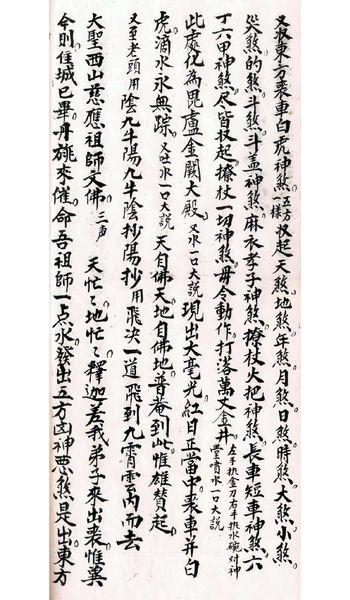 又收東方喪車白虎神煞五方一樣收起天煞地煞年煞月煞日煞時煞大煞小煞
哭煞的煞斗煞斗盖神煞麻衣孝子神煞撩杖火把神煞長車短車神煞六
丁六甲神煞尽皆収起撩杖一切神煞毋令動作打落萬丈金井左手扒金刀右手扒水碗对神堂噴水一口大説
此處化為毘盧金闕大殿又水一口大説現出大毫光紅日正當中喪車并白
虎滴水永無踪又吐水一口大説天自佛天地自佛地普菴到此惟雄贊起
又至老頭用陰九牛陽九牛陰抄陽抄用飛决一道飛到九霄雲内而去
大聖西山慈應祖師文佛三声天忙〻地忙〻釋迦差我弟子來出喪惟冀
今則佳城已畢丹旐來催命吾祖師一点水發出五方凶神悪煞是出東方